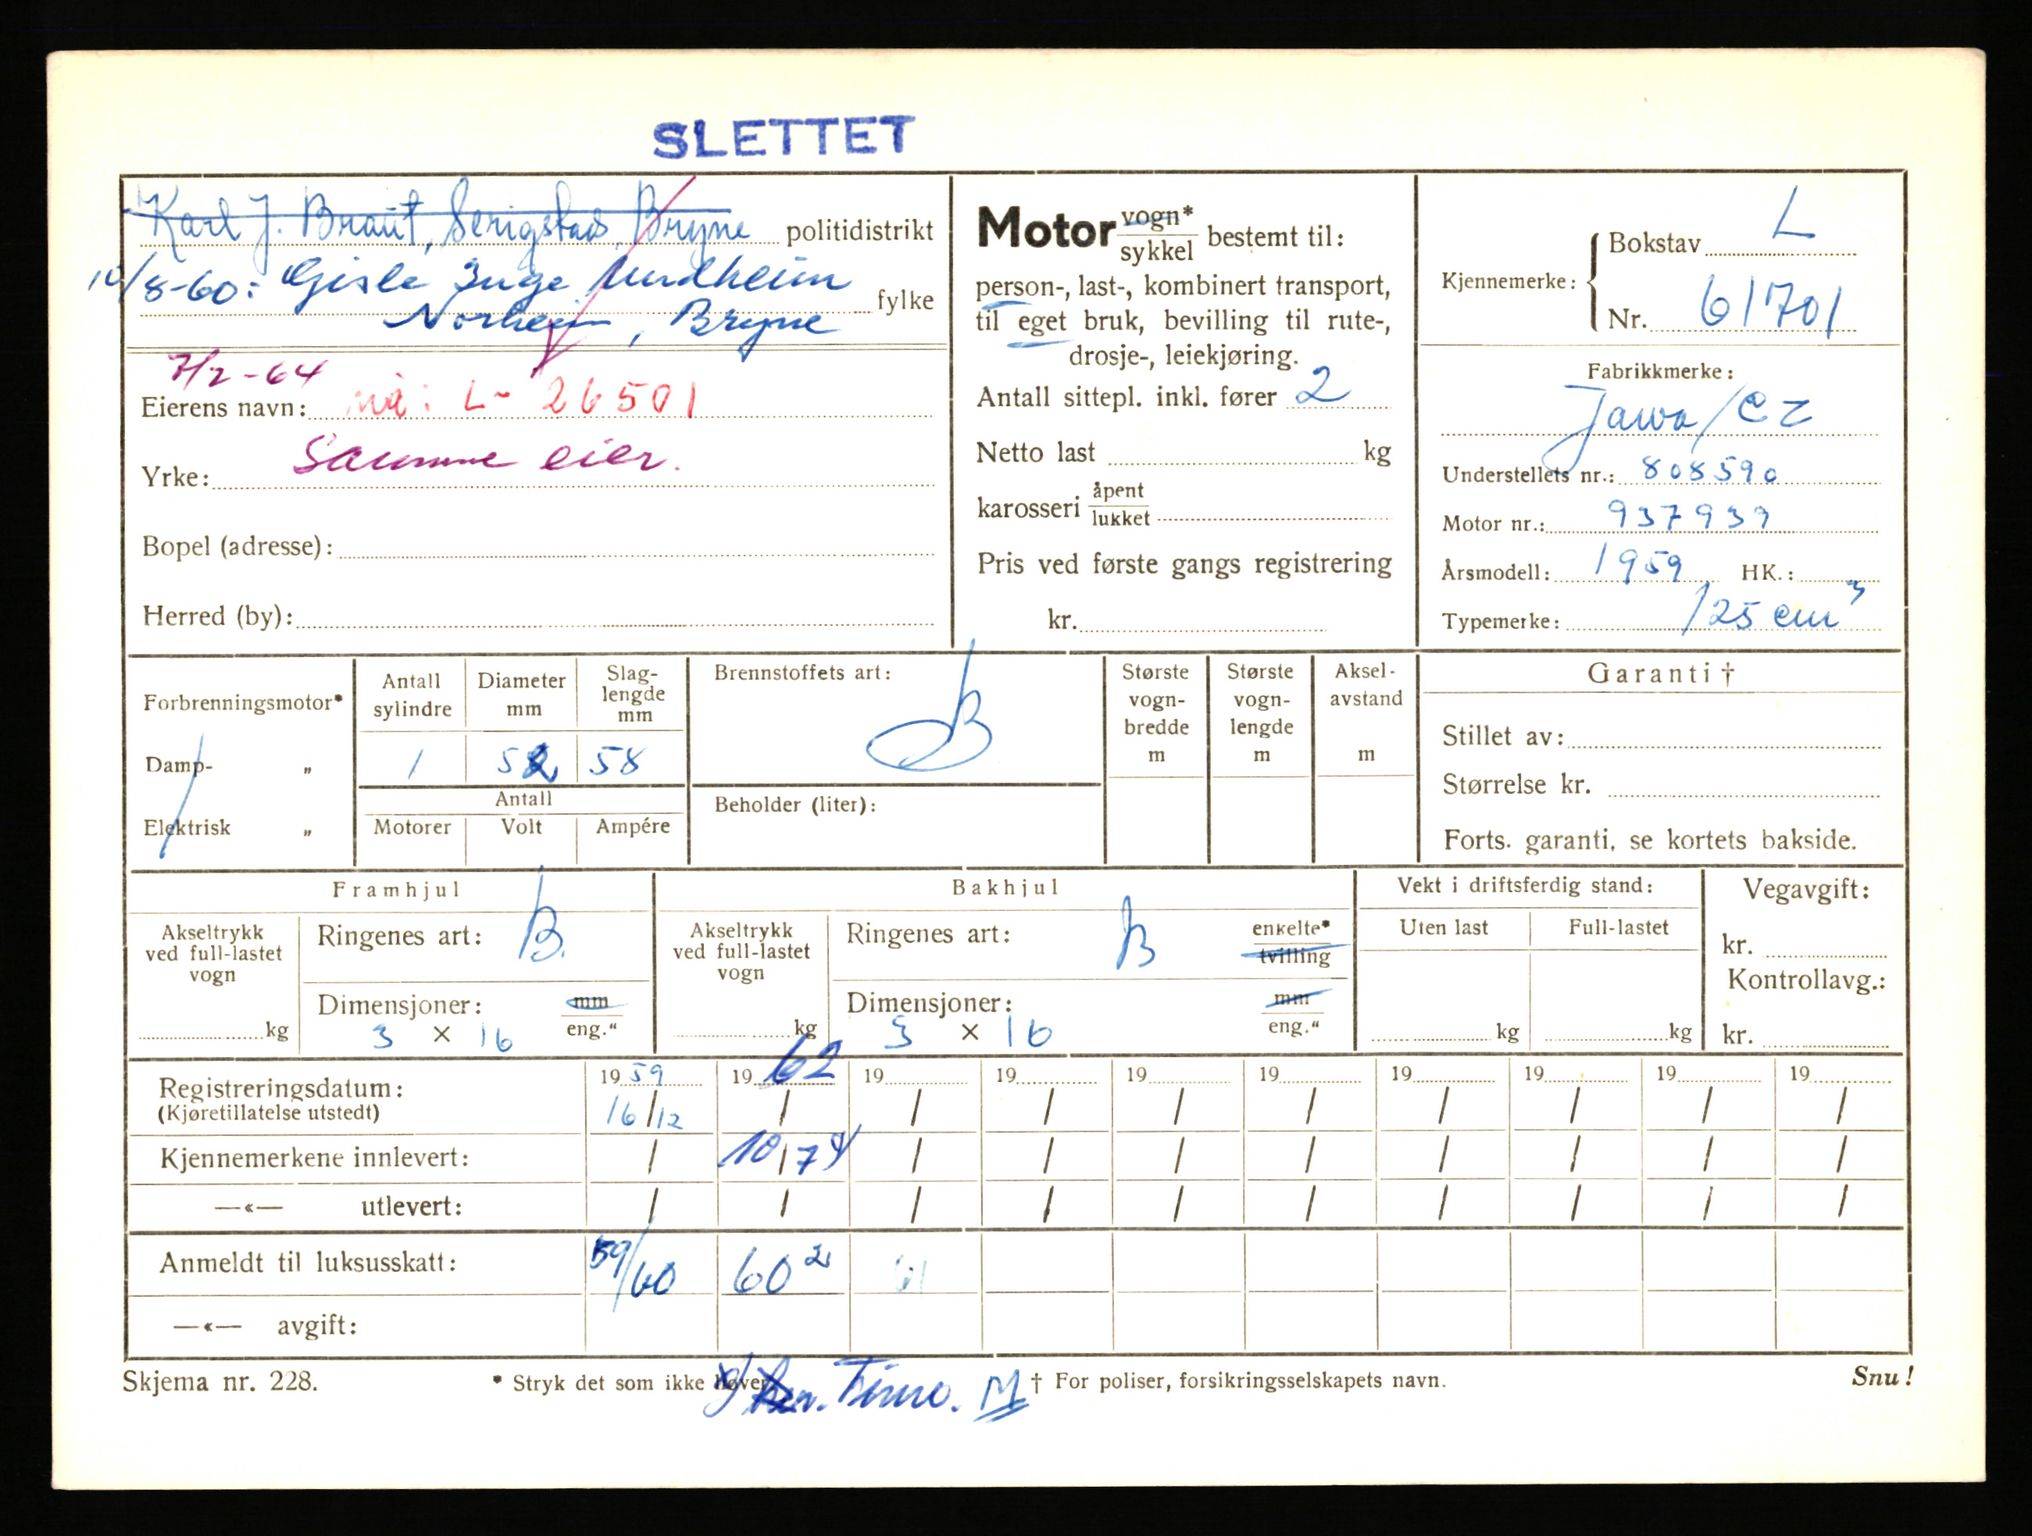 SLETTET
Karl J. Braut, Serigstad, Bryne politidistrikt
10/8-60: Gisle Inge Nordheim fylke
Norheim, Bryne
7/2-64
Eierens navn: nå: L- 26501
Yrke: Samme eier.
Bopel (adresse):
Herred (by):
Motor vogn* / sykkel bestemt til:
person-, last-, kombinert transport,
til eget bruk, bevilling til rute-,
drosje-, leiekjøring.
Antall sittepl. inkl. fører 2
Netto last kg
karosseri åpent / lukket
Pris ved første gangs registrering
kr.
Kjennemerke: Bokstav L
Nr. 61701
Fabrikkmerke:
Jawa/CZ
Understellets nr.: 808590
Motor nr.: 937939
Årsmodell: 1959 HK.:
Typemerke: 125 cm³
Forbrenningsmotor*
Damp- „
Elektrisk „
Antall sylindre Diameter mm Slag-lengde mm
1 52 58
Antall
Motorer Volt Ampére
Brennstoffets art: B
Beholder (liter):
Største vogn-bredde m
Største vogn-lengde m
Aksel-avstand m
Garanti †
Stillet av:
Størrelse kr.
Forts. garanti, se kortets bakside.
Framhjul
Akseltrykk ved full-lastet vogn kg
Ringenes art: B.
Dimensjoner: mm / eng."
3 × 16
Bakhjul
Akseltrykk ved full-lastet vogn kg
Ringenes art: B enkelte* / tvilling
Dimensjoner: mm / eng."
3 × 16
Vekt i driftsferdig stand:
Uten last Full-lastet
kg kg
Vegavgift:
kr.
Kontrollavg.:
kr.
Registreringsdatum: 19 59 19 62 19 19 19 19 19 19 19 19
(Kjøretillatelse utstedt) 16/12 / / / / / / / / /
Kjennemerkene innlevert: / 10/7 / / / / / / / /
—«— utlevert: / / / / / / / / / /
Anmeldt til luksusskatt: 59/60 60² 61
—«— avgift:
Skjema nr. 228. * Stryk det som ikke høver. † For poliser, forsikringsselskapets navn. Snu!